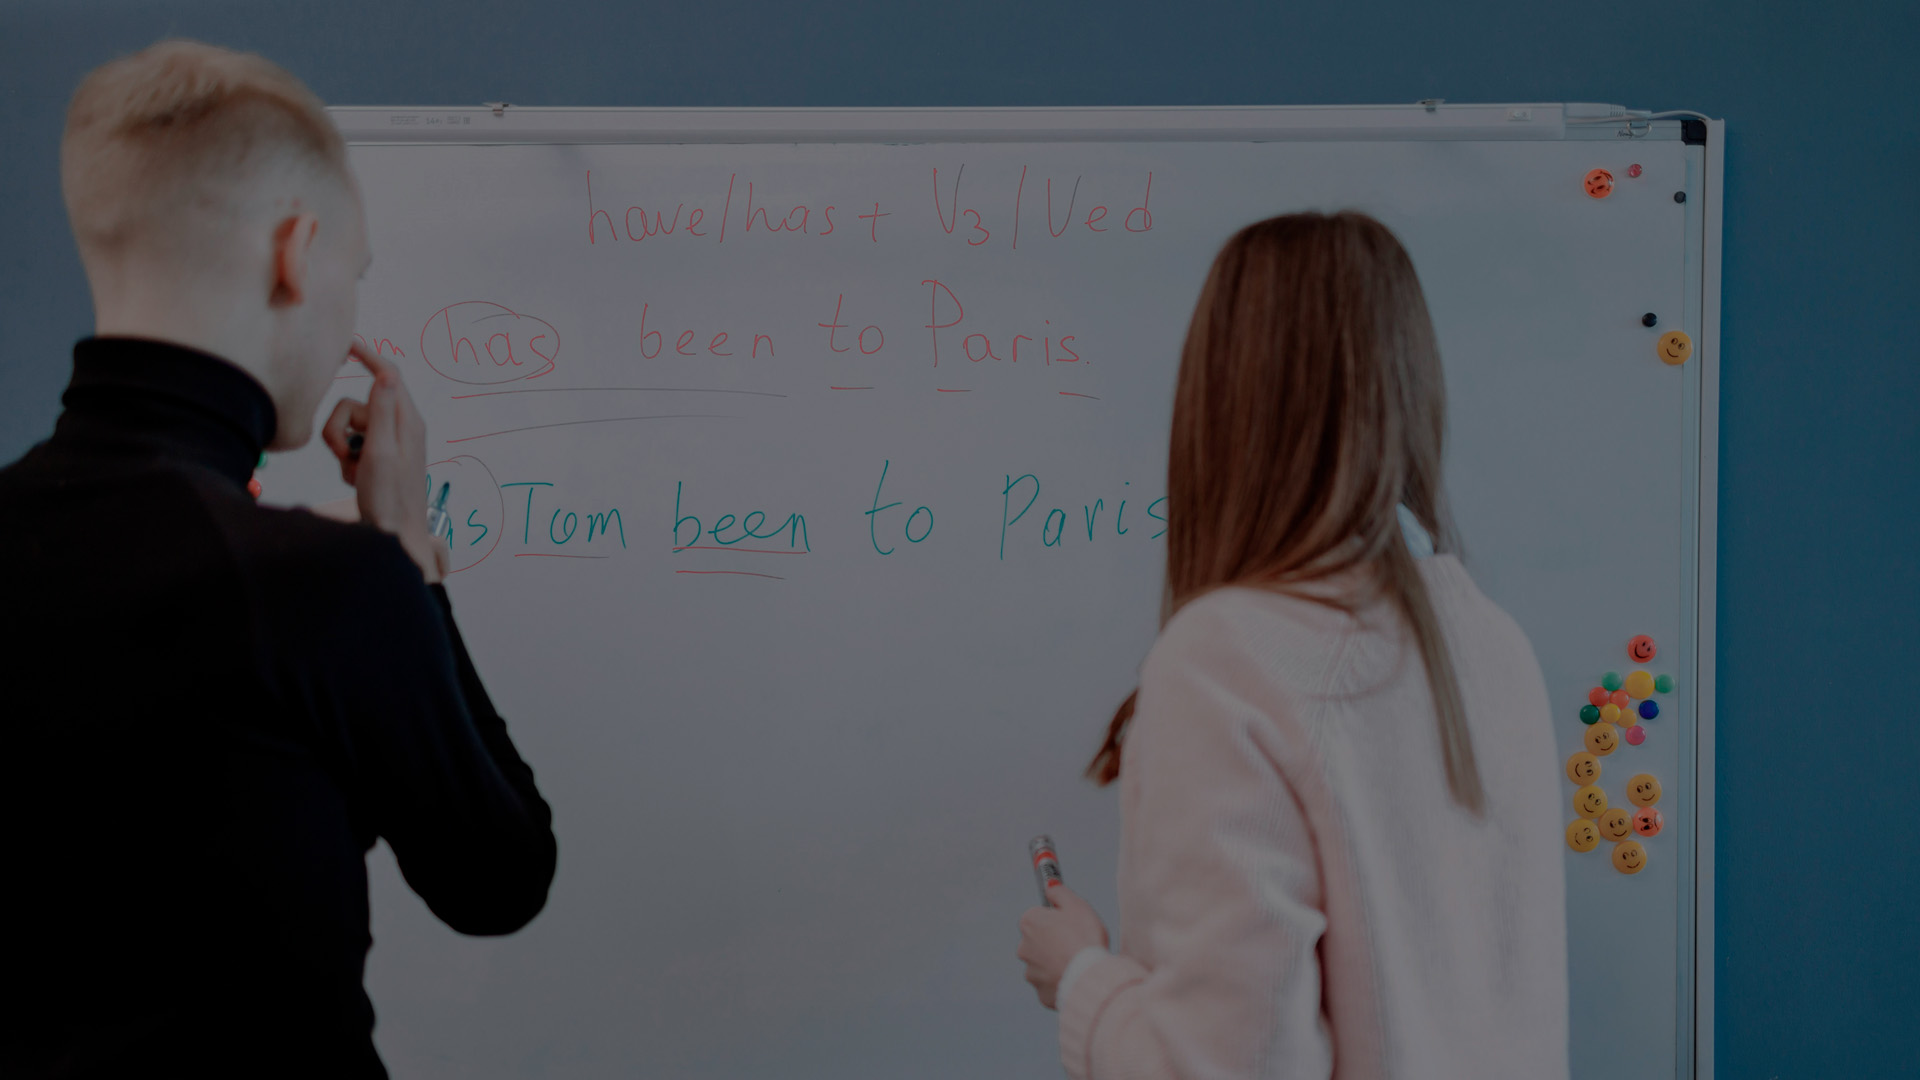 have/has + V3/Ved
has been to Paris.
Tom been to Paris